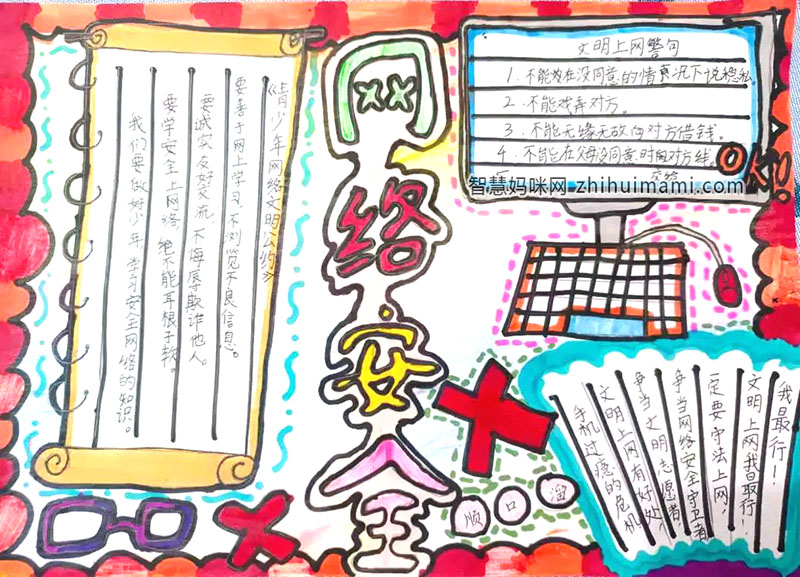 网络安全
《青少年网络文明公约》
要善于网上学习,不浏览不良信息。
要诚实友好交流,不侮辱欺诈他人。
要学安全上网络,绝不能耳根子软。
我们要做好少年,学习安全网络的知识。
文明上网警句
1. 不能放在没同意的情真况下说稳私
2. 不能戏弄对方。
3. 不能无缘无故向对方借钱。
4. 不能在父母没同意时向对方线
智慧妈咪网-zhihuimami.com
顺口溜
我最行!
文明上网我最行!
一定要守法上网,
争当网络安全守卫者
争当文明志愿者,
文明上网有好处,
手机过瘾的危机